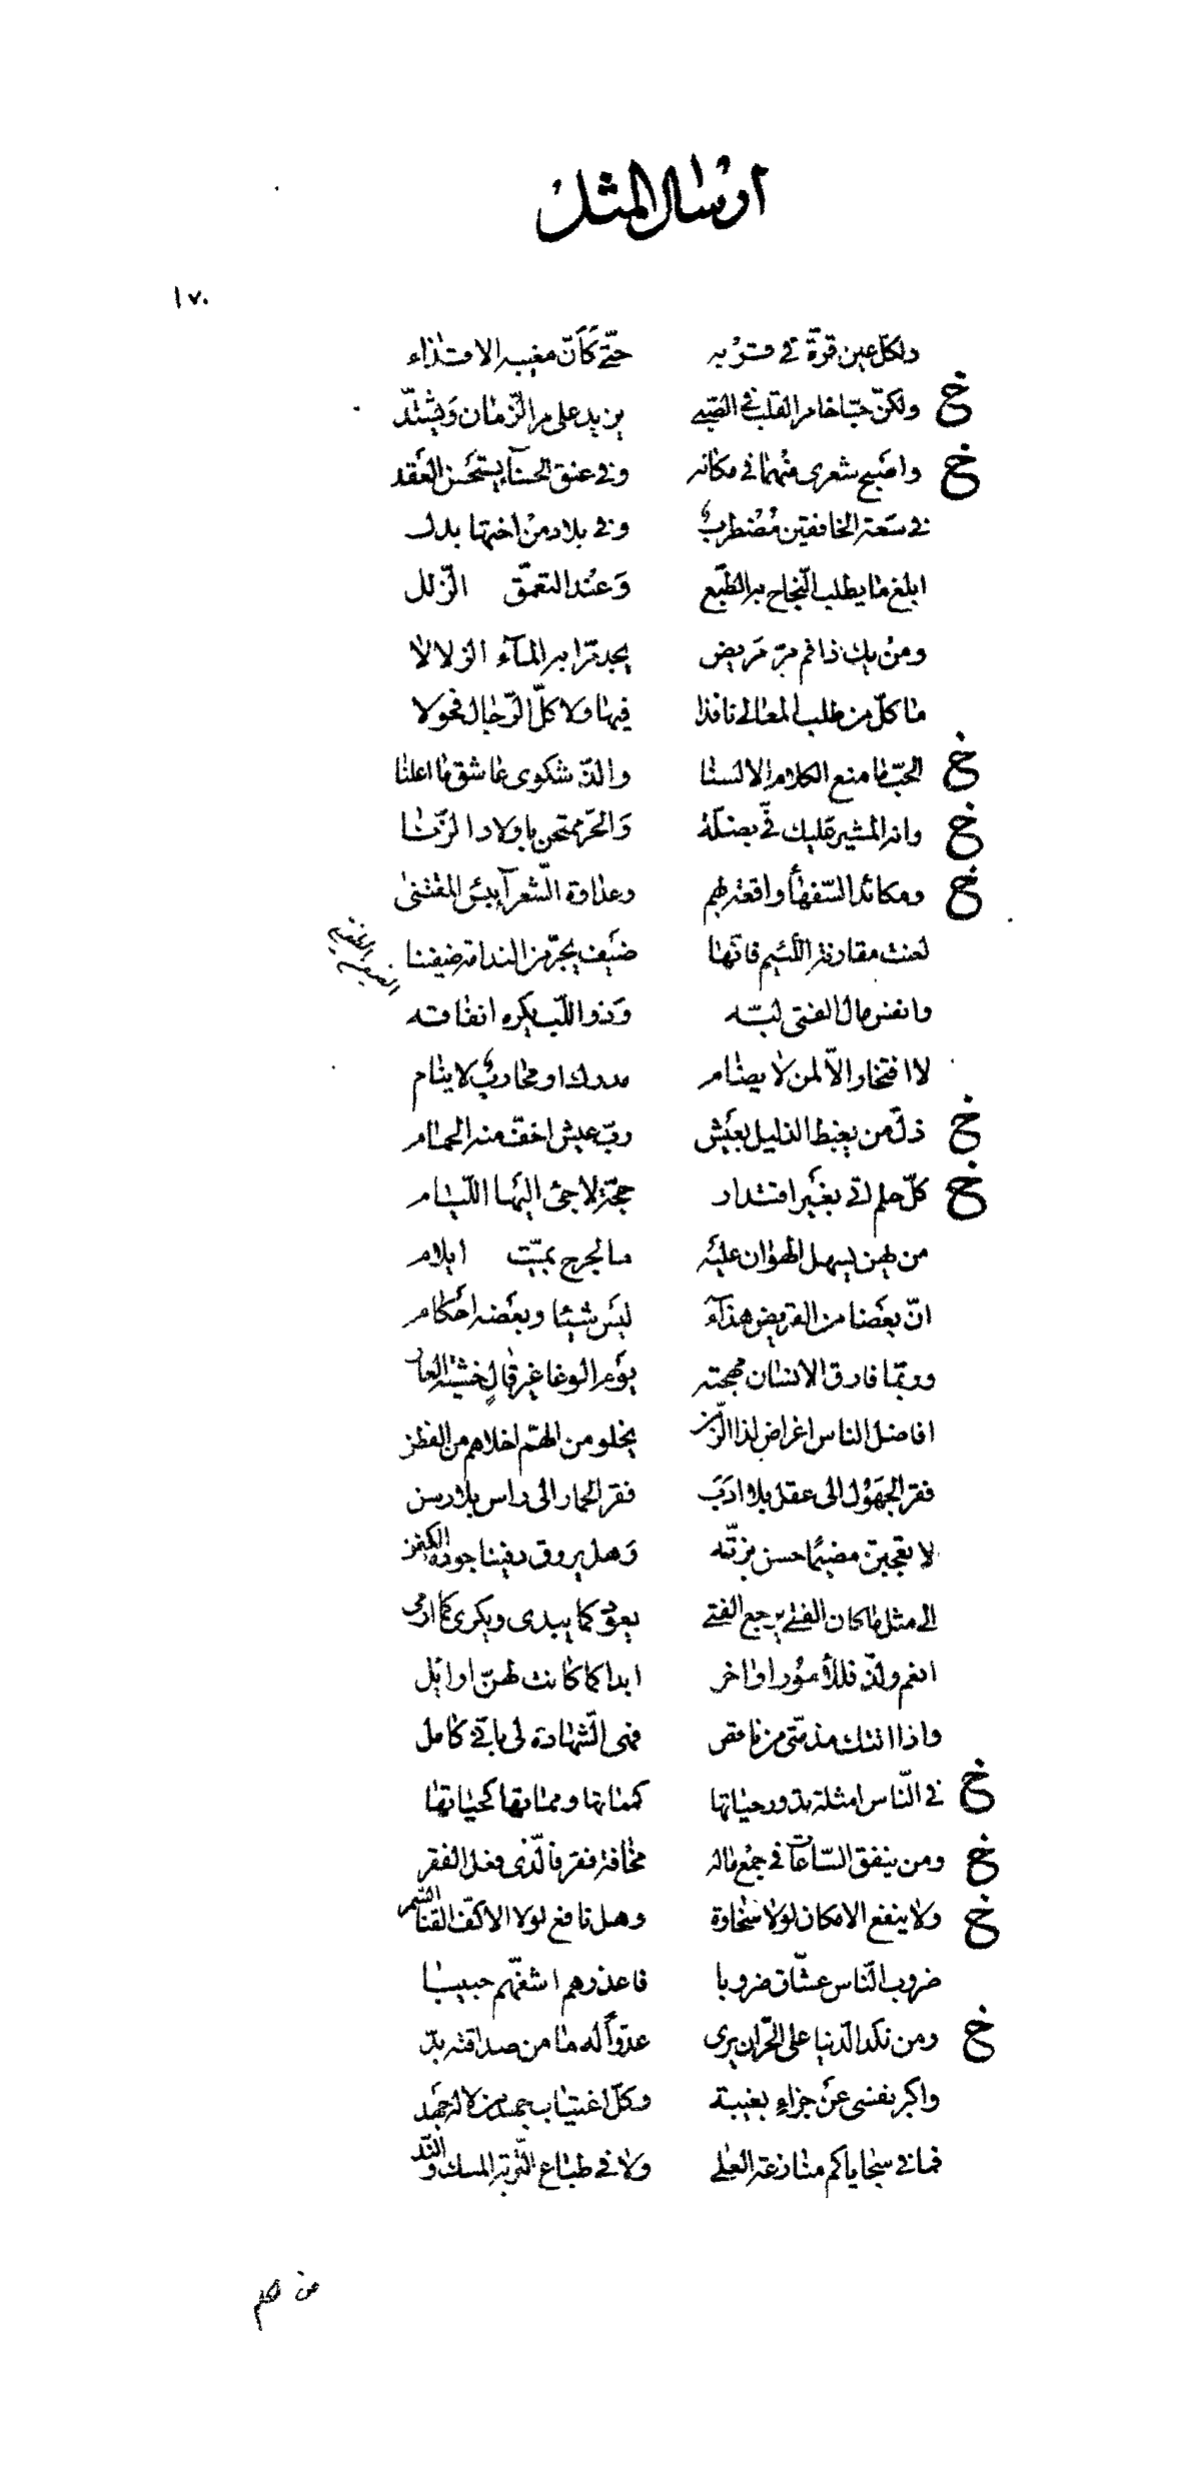 ارسال المثل
١٧٠
ولكلّ عين قرّة في قربه حتّى كأنّ مغيبه الاقذاء
خ ولكنّ حبّا خامر القلب في الصّبى يزيد على مر الزّمان ويشتدّ
خ واصبح شعرى منهما في مكانه وفي عنق الحسنآء يستحسن العقد
في سعة الخافقين مضطرب وفي بلاد من اختها بدل
ابلغ ما يطلب النّجاح به الطّبع وعند التعمّق الزّلل
ومن يك ذا فم مرّ مريض يجد مرّا به المآء الزلالا
ما كلّ من طلب المعالى نافذا فيها ولا كلّ الرّجال فحولا
خ الحبّ ما منع الكلام الالسنا والذّ شكوى عاشق ما اعلنا
خ وانه المشير عليك فيّ بضلّة والحرّ ممتحن باولاد الزّنا
خ ومكائد السّفهاء واقعة بهم وعداوة الشّعرآء بئس المقتنى
لعنت مقارنة اللّئيم فانّها ضيف يجرّ من الندامة ضيفنا
وانفس مال الفتى لبّه وذو اللّب يكره انفاقه
لا افتخار الّا لمن لا يضام مدرك او محارب لا ينام
خ ذلّ من يغبط الذليل بعيش ربّ عيش اخفّ منه الحمام
خ كلّ حلم اتى بغير اقتدار حجّة لاجئ اليها اللّئام
من يهن يسهل الهوان عليه ما لجرح بميّت ايلام
انّ بعضا من القريض هذآء ليس شيئا وبعضه احكام
وربّما فارق الانسان مهجته يوم الوغا غير قال خشية العار
افاضل الناس اغراض لذا الزّمن يخلو من الهمّ اخلاهم من الفطن
فقر الجهول الى عقل بلا ادب فقر الحمار الى راس بلا رسن
لا يعجبنّ مضيما حسن بزّته وهل يروق دفينا جودة الكفن
الى مثل ما كان الفتى يرجع الفتى يعود كما يبدى ويكرى كما ارمى
انعم ولذّ فللأمور اواخر ابدا كما كانت لهنّ اوايل
واذا اتتك مذمّتى من ناقص فهى الشّهادة لى بانّى كامل
خ في النّاس امثلة تدور حياتها كمماتها ومماتها كحياتها
خ ومن ينفق السّاعات في جمع ماله مخافة فقر فالّذى فعل الفقر
خ ولا ينفع الامكان لولا سخاؤه وهل نافع لولا الاكفّ القنا السّمر
ضروب النّاس عشّاق ضروبا فاعذرهم اشفّهم حبيبا
خ ومن نكد الدّنيا على الحرّ ان يرى عدوّا له ما من صداقته بدّ
واكبر نفسى عن جزاء بغيبة وكلّ اغتياب جهد من لا له جهد
فما في سجاياكم منازعة العلى ولا في طباع التّربة المسك والنّد